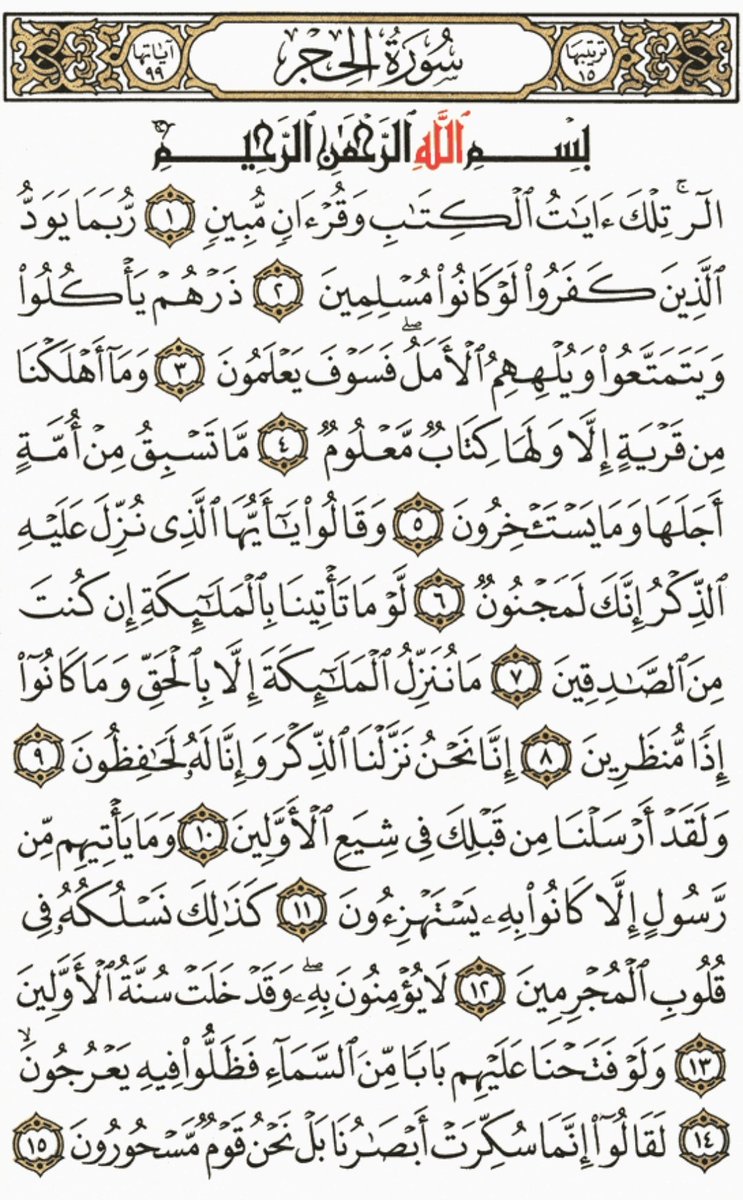 ترتيبها ١٥ سُورَةُ الحِجرِ آياتها ٩٩
بِسْمِ ٱللَّهِ ٱلرَّحْمَٰنِ ٱلرَّحِيمِ
الٓرۚ تِلْكَ ءَايَٰتُ ٱلْكِتَٰبِ وَقُرْءَانٍ مُّبِينٍ ١ رُّبَمَا يَوَدُّ
ٱلَّذِينَ كَفَرُوا۟ لَوْ كَانُوا۟ مُسْلِمِينَ ٢ ذَرْهُمْ يَأْكُلُوا۟
وَيَتَمَتَّعُوا۟ وَيُلْهِهِمُ ٱلْأَمَلُۖ فَسَوْفَ يَعْلَمُونَ ٣ وَمَآ أَهْلَكْنَا
مِن قَرْيَةٍ إِلَّا وَلَهَا كِتَابٌ مَّعْلُومٌ ٤ مَّا تَسْبِقُ مِنْ أُمَّةٍ
أَجَلَهَا وَمَا يَسْتَـْٔخِرُونَ ٥ وَقَالُوا۟ يَٰٓأَيُّهَا ٱلَّذِى نُزِّلَ عَلَيْهِ
ٱلذِّكْرُ إِنَّكَ لَمَجْنُونٌ ٦ لَّوْ مَا تَأْتِينَا بِٱلْمَلَٰٓئِكَةِ إِن كُنتَ
مِنَ ٱلصَّٰدِقِينَ ٧ مَا نُنَزِّلُ ٱلْمَلَٰٓئِكَةَ إِلَّا بِٱلْحَقِّ وَمَا كَانُوٓا۟
إِذًا مُّنظَرِينَ ٨ إِنَّا نَحْنُ نَزَّلْنَا ٱلذِّكْرَ وَإِنَّا لَهُۥ لَحَٰفِظُونَ ٩
وَلَقَدْ أَرْسَلْنَا مِن قَبْلِكَ فِى شِيَعِ ٱلْأَوَّلِينَ ١٠ وَمَا يَأْتِيهِم مِّن
رَّسُولٍ إِلَّا كَانُوا۟ بِهِۦ يَسْتَهْزِءُونَ ١١ كَذَٰلِكَ نَسْلُكُهُۥ فِى
قُلُوبِ ٱلْمُجْرِمِينَ ١٢ لَا يُؤْمِنُونَ بِهِۦۖ وَقَدْ خَلَتْ سُنَّةُ ٱلْأَوَّلِينَ
١٣ وَلَوْ فَتَحْنَا عَلَيْهِم بَابًا مِّنَ ٱلسَّمَآءِ فَظَلُّوا۟ فِيهِ يَعْرُجُونَۙ
١٤ لَقَالُوٓا۟ إِنَّمَا سُكِّرَتْ أَبْصَٰرُنَا بَلْ نَحْنُ قَوْمٌ مَّسْحُورُونَ ١٥